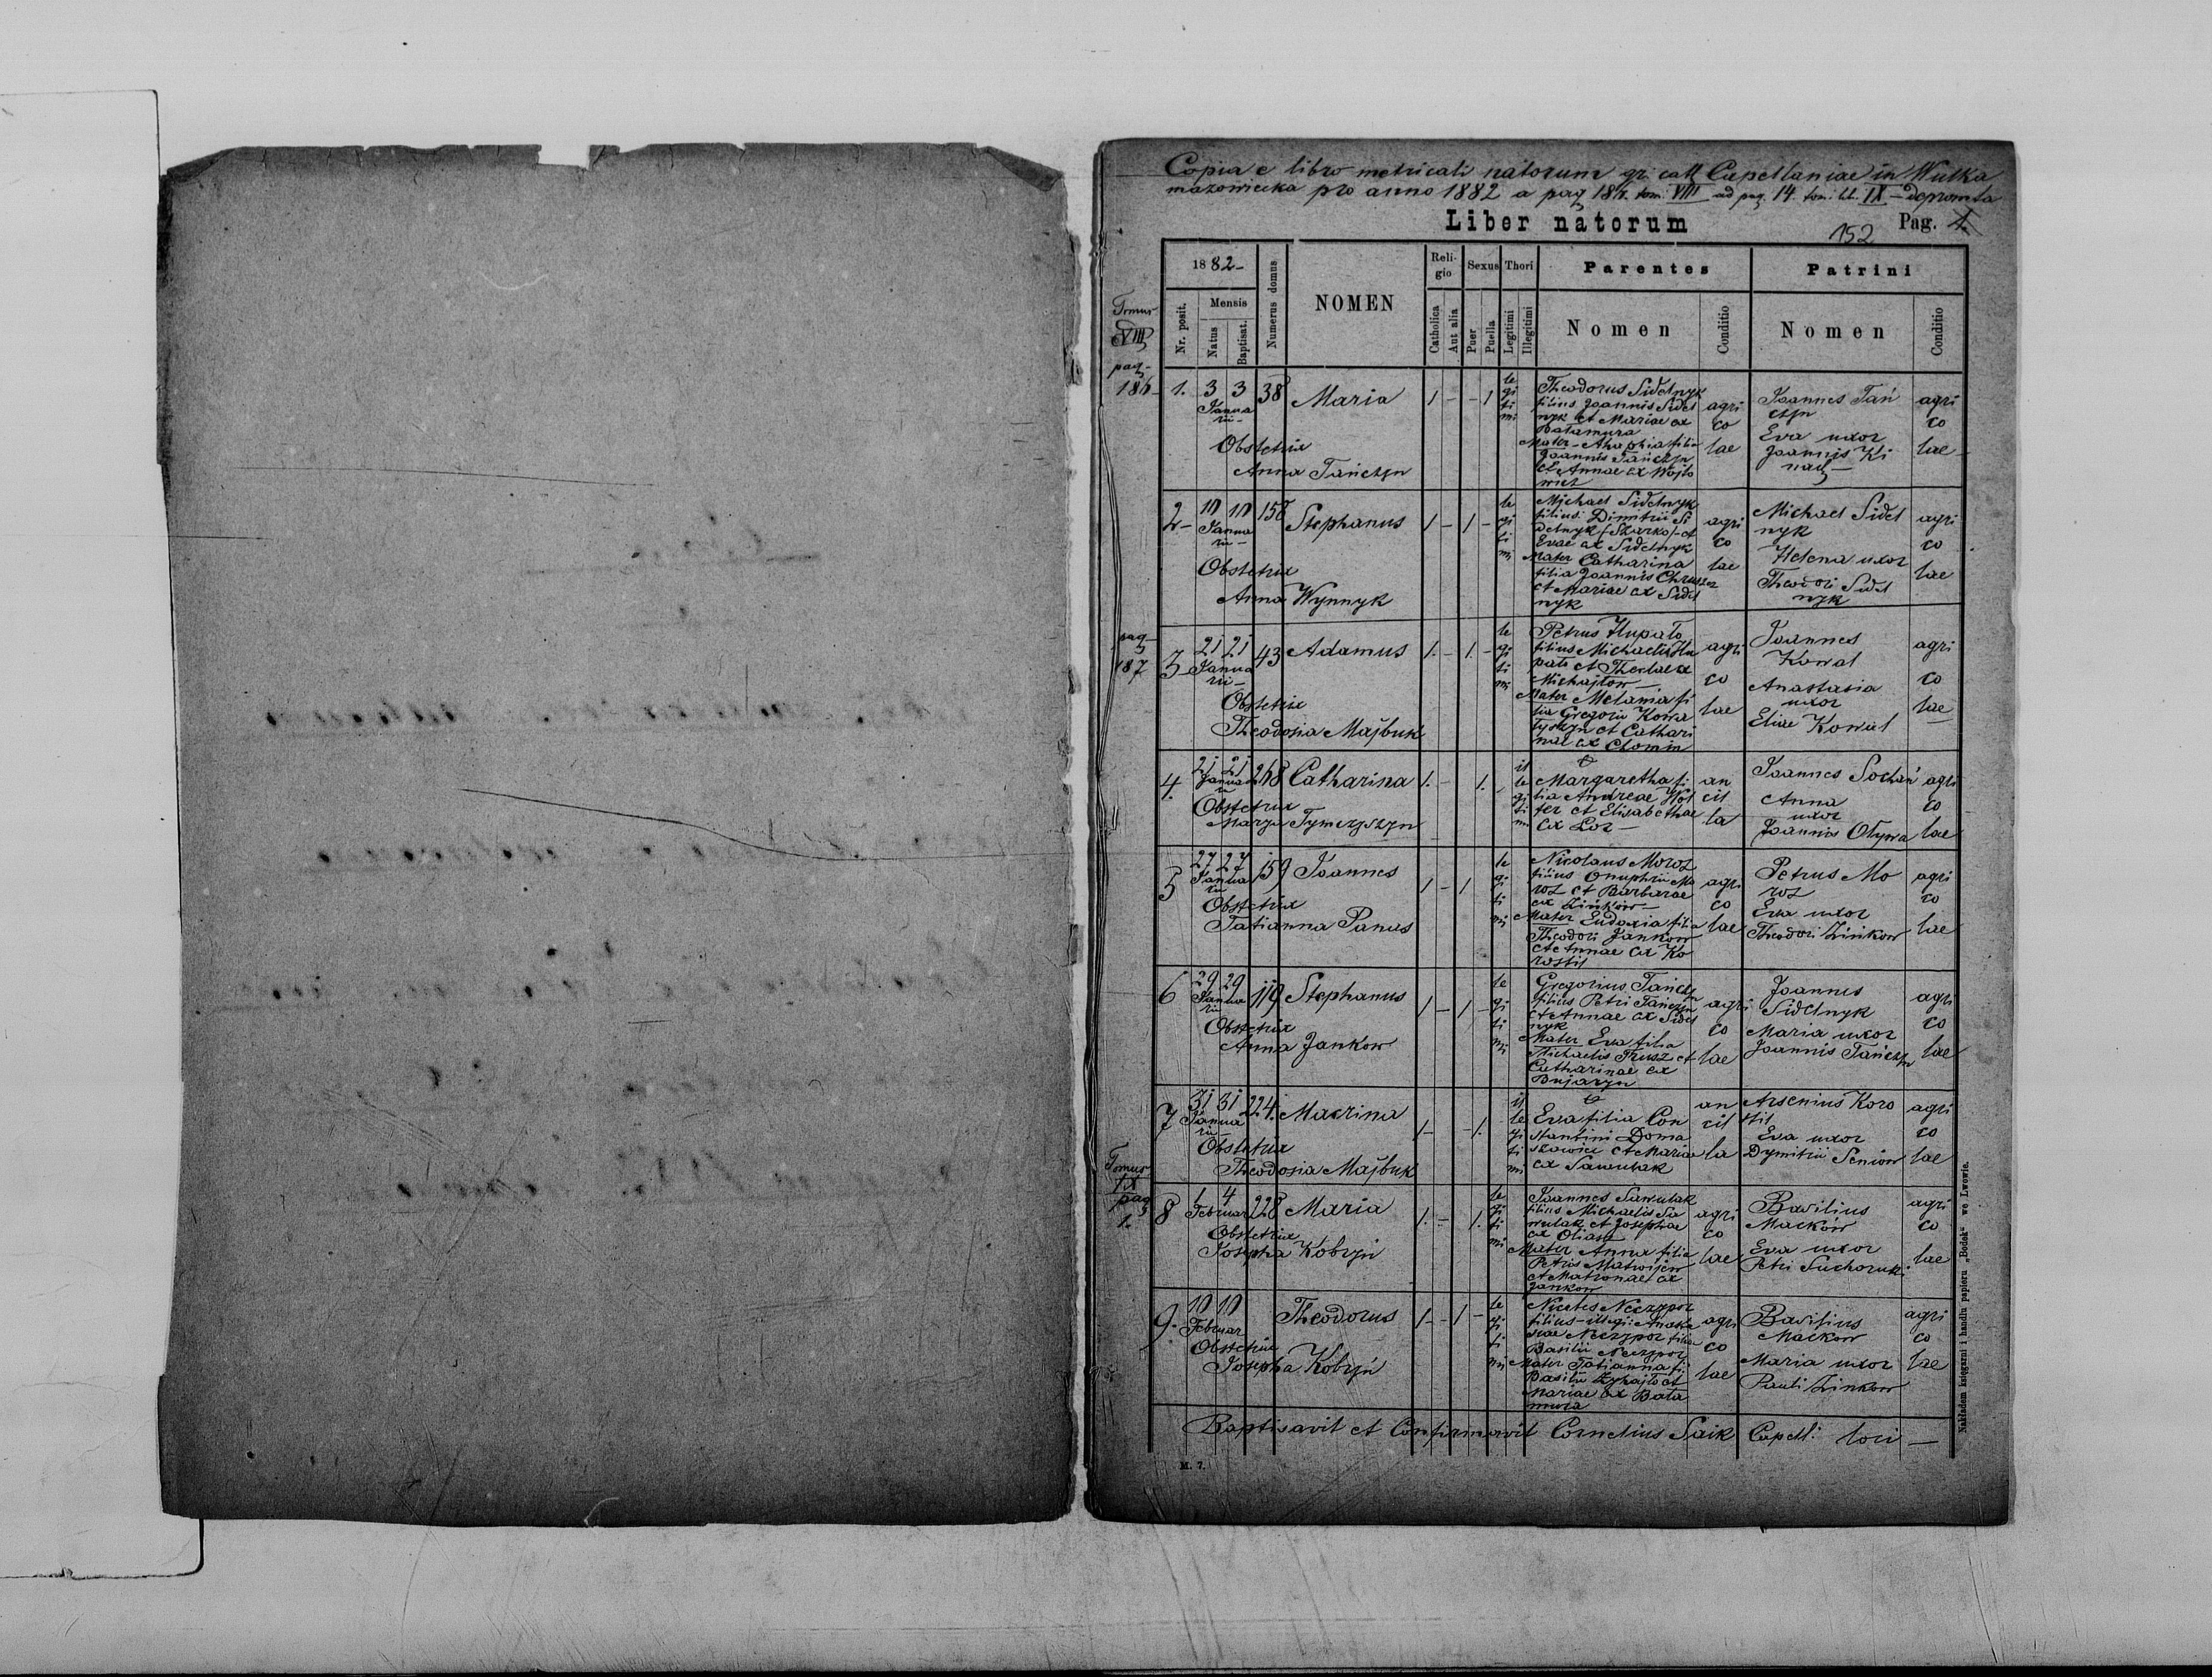 Copia e libro metricali natorum gr. cath Capellaniae in Wulka
mazowiecka pro anno 1882 a pag 186. tom. VIII ad pag. 14. tom. lib. IX – depromta
Liber natorum
152 Pag. 1.
1882 –
Nr. posit.
Mensis
Natus
Baptisat.
Numerus domus
NOMEN
Religio
Catholica
Aut alia
Sexus
Puer
Puella
Thori
Legitimi
Illegitimi
Parentes
Nomen
Conditio
Patrini
Nomen
Conditio
Tomus
VIII
pag –
186 –
1. 3 3 38 Maria 1 – – 1
Janua
rii –
Obstetrix
Anna Tańczyn
le
gi
ti
mi
Theodorus Sidelnyk
filius Joannis Sidel
nyk et Mariae ex
Batamura
Mater – Ahaphia filia
Joannis Tańczyn
et Annae ex Wojto
wicz
agri
co
lae
Joannes Tań
czyn
Eva uxor
Joannis Ki
nasz –
agri
co
lae –
2 – 10 10 158 Stephanus 1 – 1 –
Janua
rii –
Obstetrix
Anna Wynnyk
le
gi
ti
mi
Michael Sidelnyk
filius Dimitrii Si
delnyk (Szarko) – et
Evae ex Sidelnyk
Mater Catharina
filia Joannis Chruszcz
et Mariae ex Sidel
nyk
agri
co
lae
Michael Sidel
nyk
Helena uxor
Theodori Sidel
nyk
agri
co
lae
pag –
187
3 – 21 21 43 Adamus 1. – 1. –
Janua
rii –
Obstetrix
Theodosia Majbuk
le
gi
ti
mi
Petrus Hupało
filius Michaelis Hu
pało et Theclae ex
Michajłow –
Mater Melania fi
lia Gregorii Kowa
łyszyn et Cathari
nae ex Chomin
agri
co
lae
Joannes
Kowal
Anastasia
uxor
Eliae Kowal
agri
co
lae
4. 21 21 268 Catharina 1. – 1.
Januar
ii
Obstetrix
Marya Tymczyszyn
il
le
gi
ti
mi
Margaretha fi
lia Andreae Wol
fer et Elisabethae
ex Loz –
an
cil
la
Joannes Sochań
Anna
uxor
Joannis Oływa
agri
co
lae
5 27 27 159 Joannes 1 – 1
Janua
rii
Obstetrix
Tatianna Panas
le
gi
ti
mi
Nicolaus Moroz
filius Onuphrii Mo
roz et Barbarae
ex Zinków –
Mater Eudoxia filia
Theodori Jankow
et Annae ex Ko
rostil
agri
co
lae
Petrus Mo
roz
Eva uxor
Theodori Zinkow
agri
co
lae
6 29 29 119 Stephanus 1 – 1 –
Janua
rii
Obstetrix
Anna Jankow
le
gi
ti
mi
Gregorius Tańczyn
filius Petri Tańczyn
et Annae ex Sidel
nyk
Mater Eva filia
Michaelis Prusz et
Catharinae ex
Bujaryn
agri
co
lae
Joannes
Sidelnyk
Maria uxor
Joannis Tańczyn
agri
co
lae
7 31 31 224. Macrina 1 – – 1.
Janua
rii –
Obstetrix
Theodosia Majbuk
il
le
gi
ti
mi
Eva filia Con
stantini Doma
szowicz et Mariae
ex Sawulak
an
cil
la
Arsenius Koro
stil
Eva uxor
Dymitrii Seniow
agri
co
lae
Tomus
IX
pag
1.
8 1 4 228 Maria 1. – 1.
Februar
Obstetrix
Josepha Kobryń
le
gi
ti
mi
Joannes Sawulak
filius Michaelis Sa
wulak et Josephae
ex Oliasz
Mater Anna filia
Petris Matwijów
et Matronae ex
Jankow
agri
co
lae
Basilius
Macków
Eva uxor
Petri Suchoruki
agri
co
lae
9. 10 10 Theodorus 1 – – 1 –
Februar
Obstetrix
Josepha Kobryń
le
gi
ti
mi
Nicetes Neczypor
filius – illegi: Anasta
siae Neczypor filia
Basilii Neczypor
Mater Tatianna fi.
Basilii Zyhajło et
Mariae ex Bata
mura
agri
co
lae
Basilius
Mackow
Maria uxor
Pauli Zinkow
agri
co
lae
Baptisavit et Confirmavit Cornelius Saik Capell: loci –
M. 7.
Nakładem księgarni i handlu papieru „Bodek“ we Lwowie.